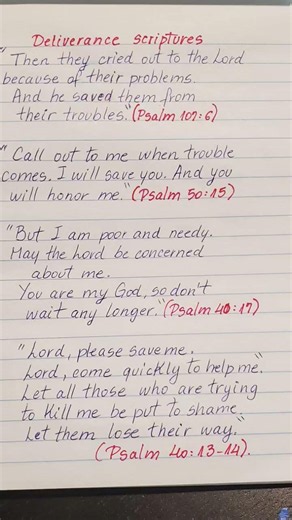 Deliverance scriptures
"Then they cried out to the Lord
because of their problems.
And he saved them from
their troubles." (Psalm 107:6)
"Call out to me when trouble
comes. I will save you. And you
will honor me." (Psalm 50:15)
"But I am poor and needy.
May the Lord be concerned
about me.
You are my God, so don't
wait any longer." (Psalm 40:17)
"Lord, please save me.
Lord, come quickly to help me."
Let all those who are trying
to kill me be put to shame.
Let them lose their way."
(Psalm 40:13-14).